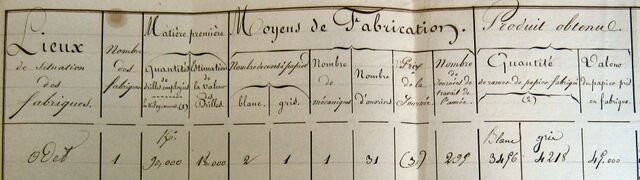 Matière première
Moyens de Fabrication.
Produit obtenu
Lieux
de situation
des
fabriques.
Nombre
des
fabriques
Quantité
de chiffes employées
Estimation
de la valeur
des
Nombre de cuves à papier
blanc.
gris.
Nombre
de
mécaniques
Nombre
d'ouvriers
Prix
de la
Journée
Nombre de
Journées de
travail de
l'année.
Quantité
de rames de papier fabriqué
(2)
Valeur
du papier pris
en fabrique.
Ko
Blanc
gris
Odet
1
90,000
18.000
2
1
1
31
(3)
295
3496
4218
45.000